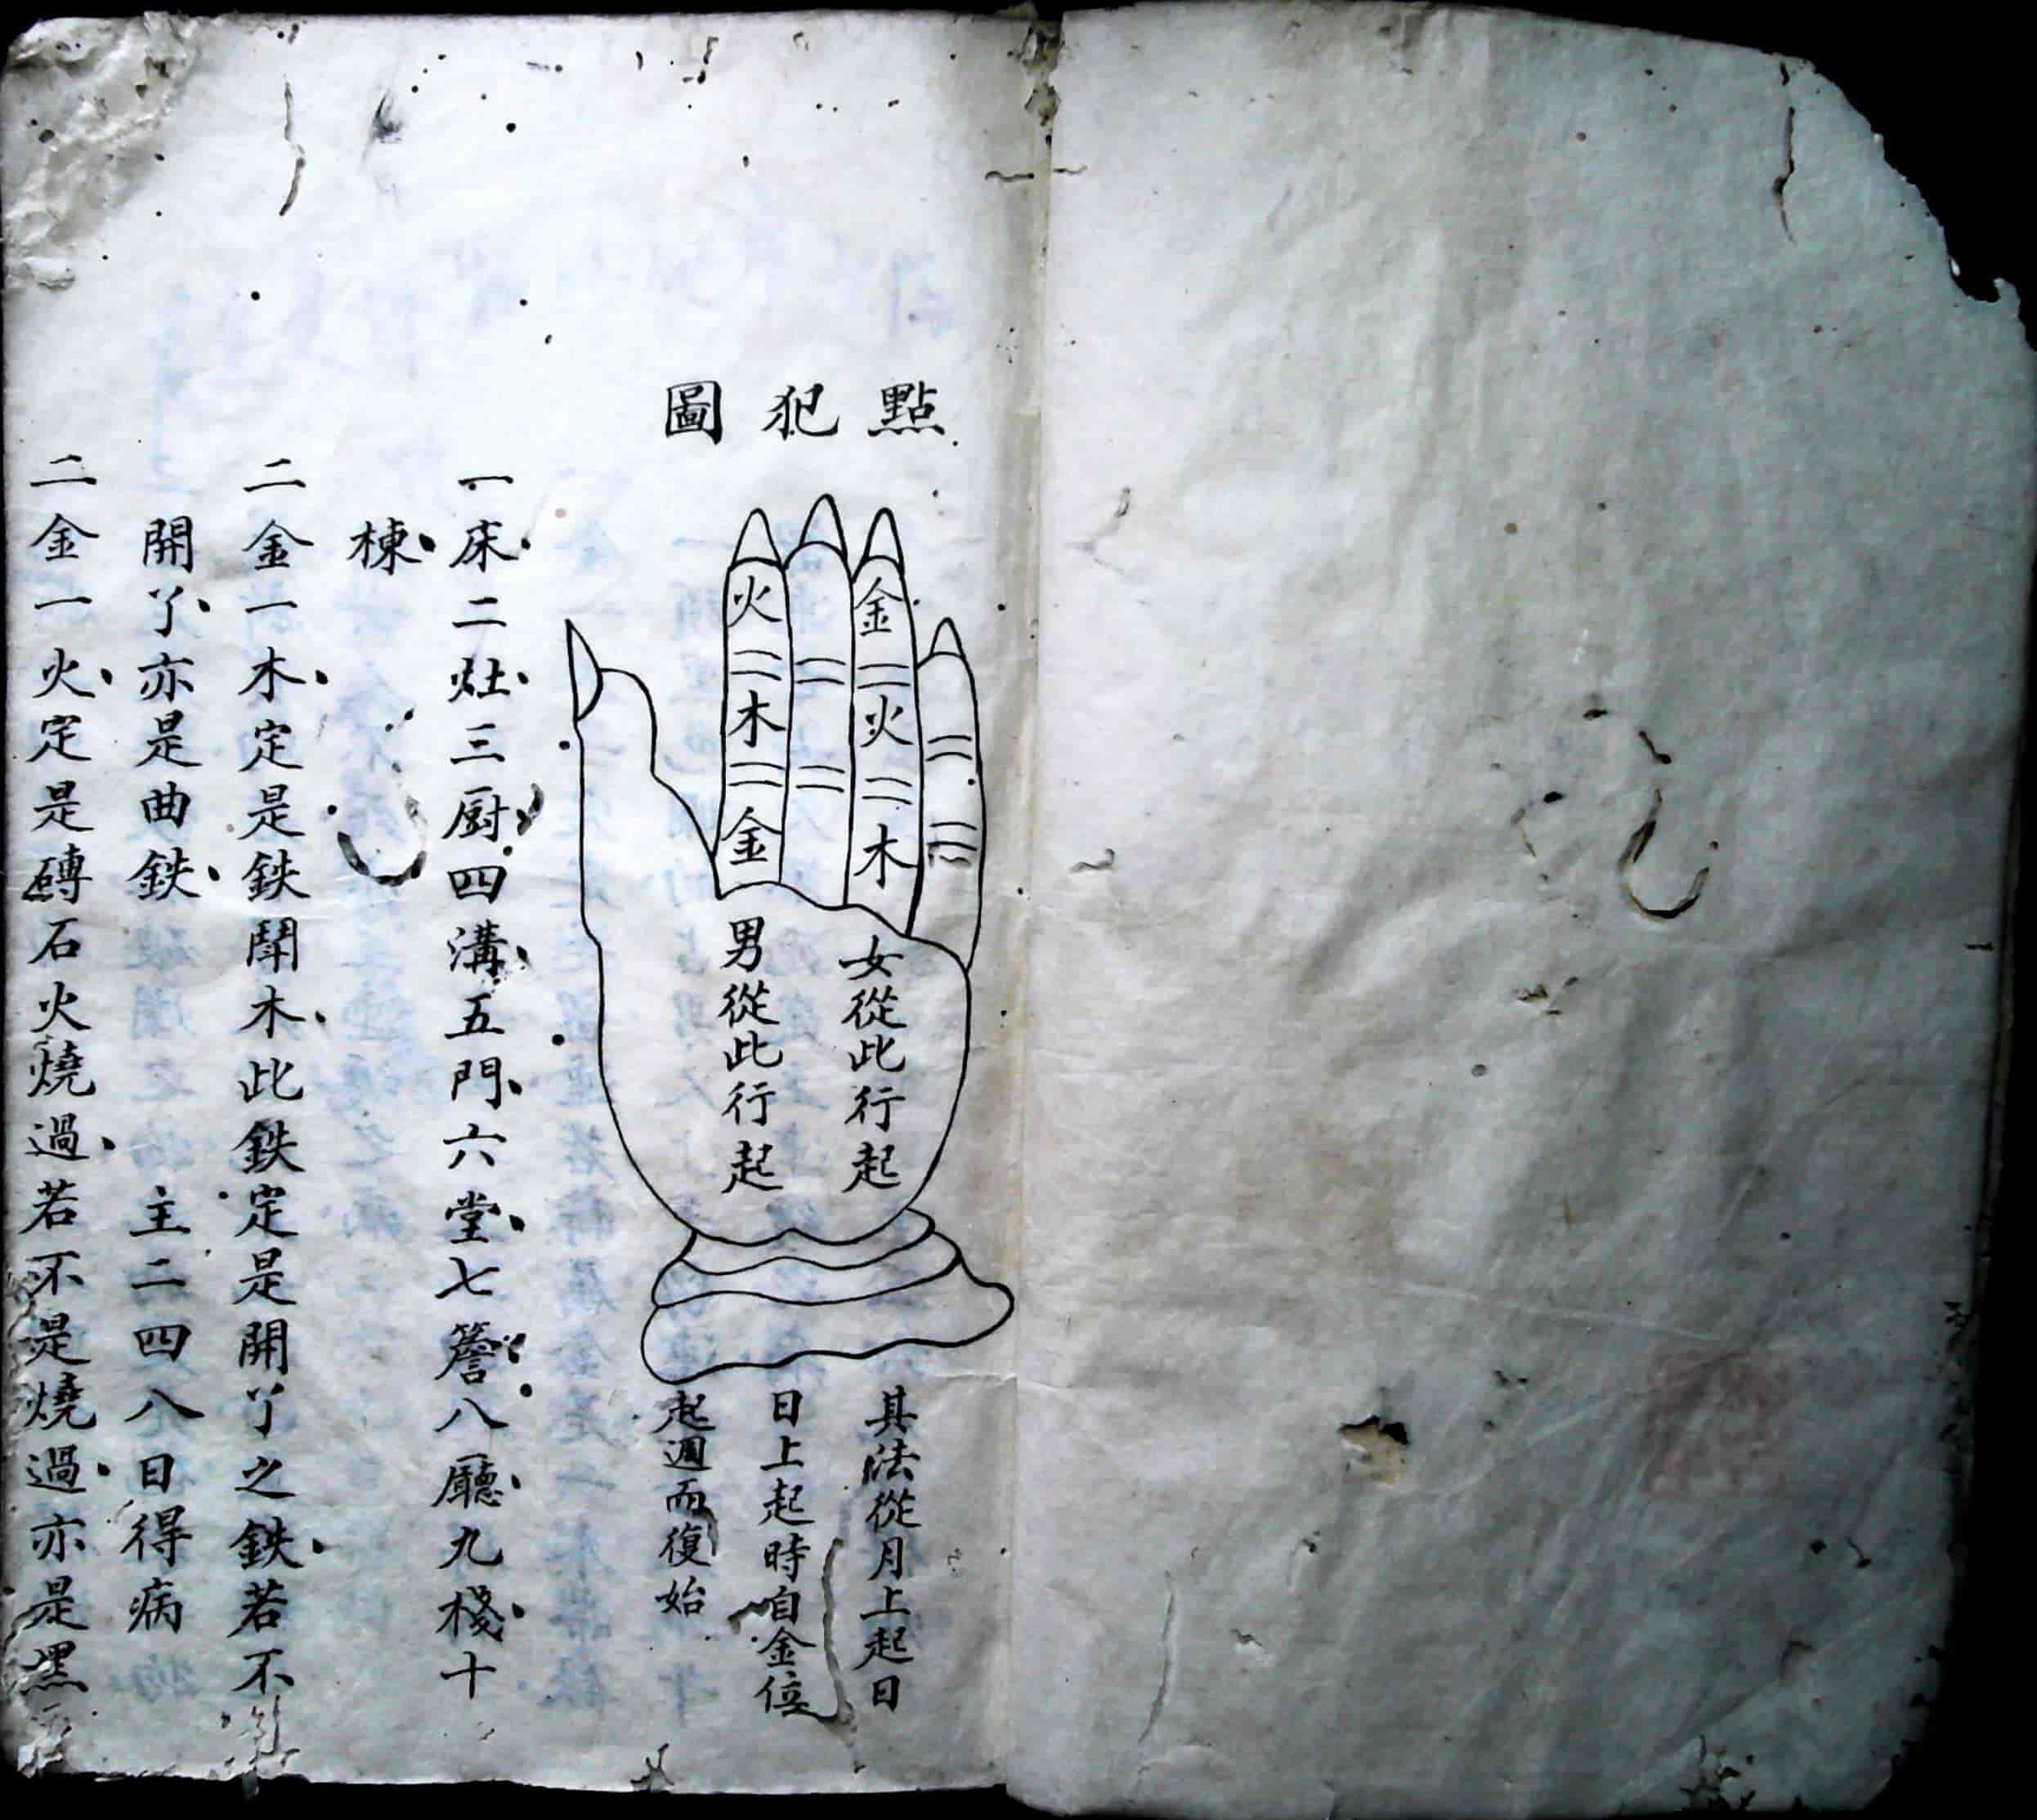 點犯圖
金火木
火木金
女從此行起
男從此行起
其法從月上起日
日上起時自金位
起週而復始
一床二灶三厨四溝五門六堂七簷八廳九棧十
棟
二金一木定是鉄鬪木此鉄定是開丫之鉄若不
開丫亦是曲鉄 主二四八日得病
二金一火定是磚石火燒過若不是燒過亦是黑